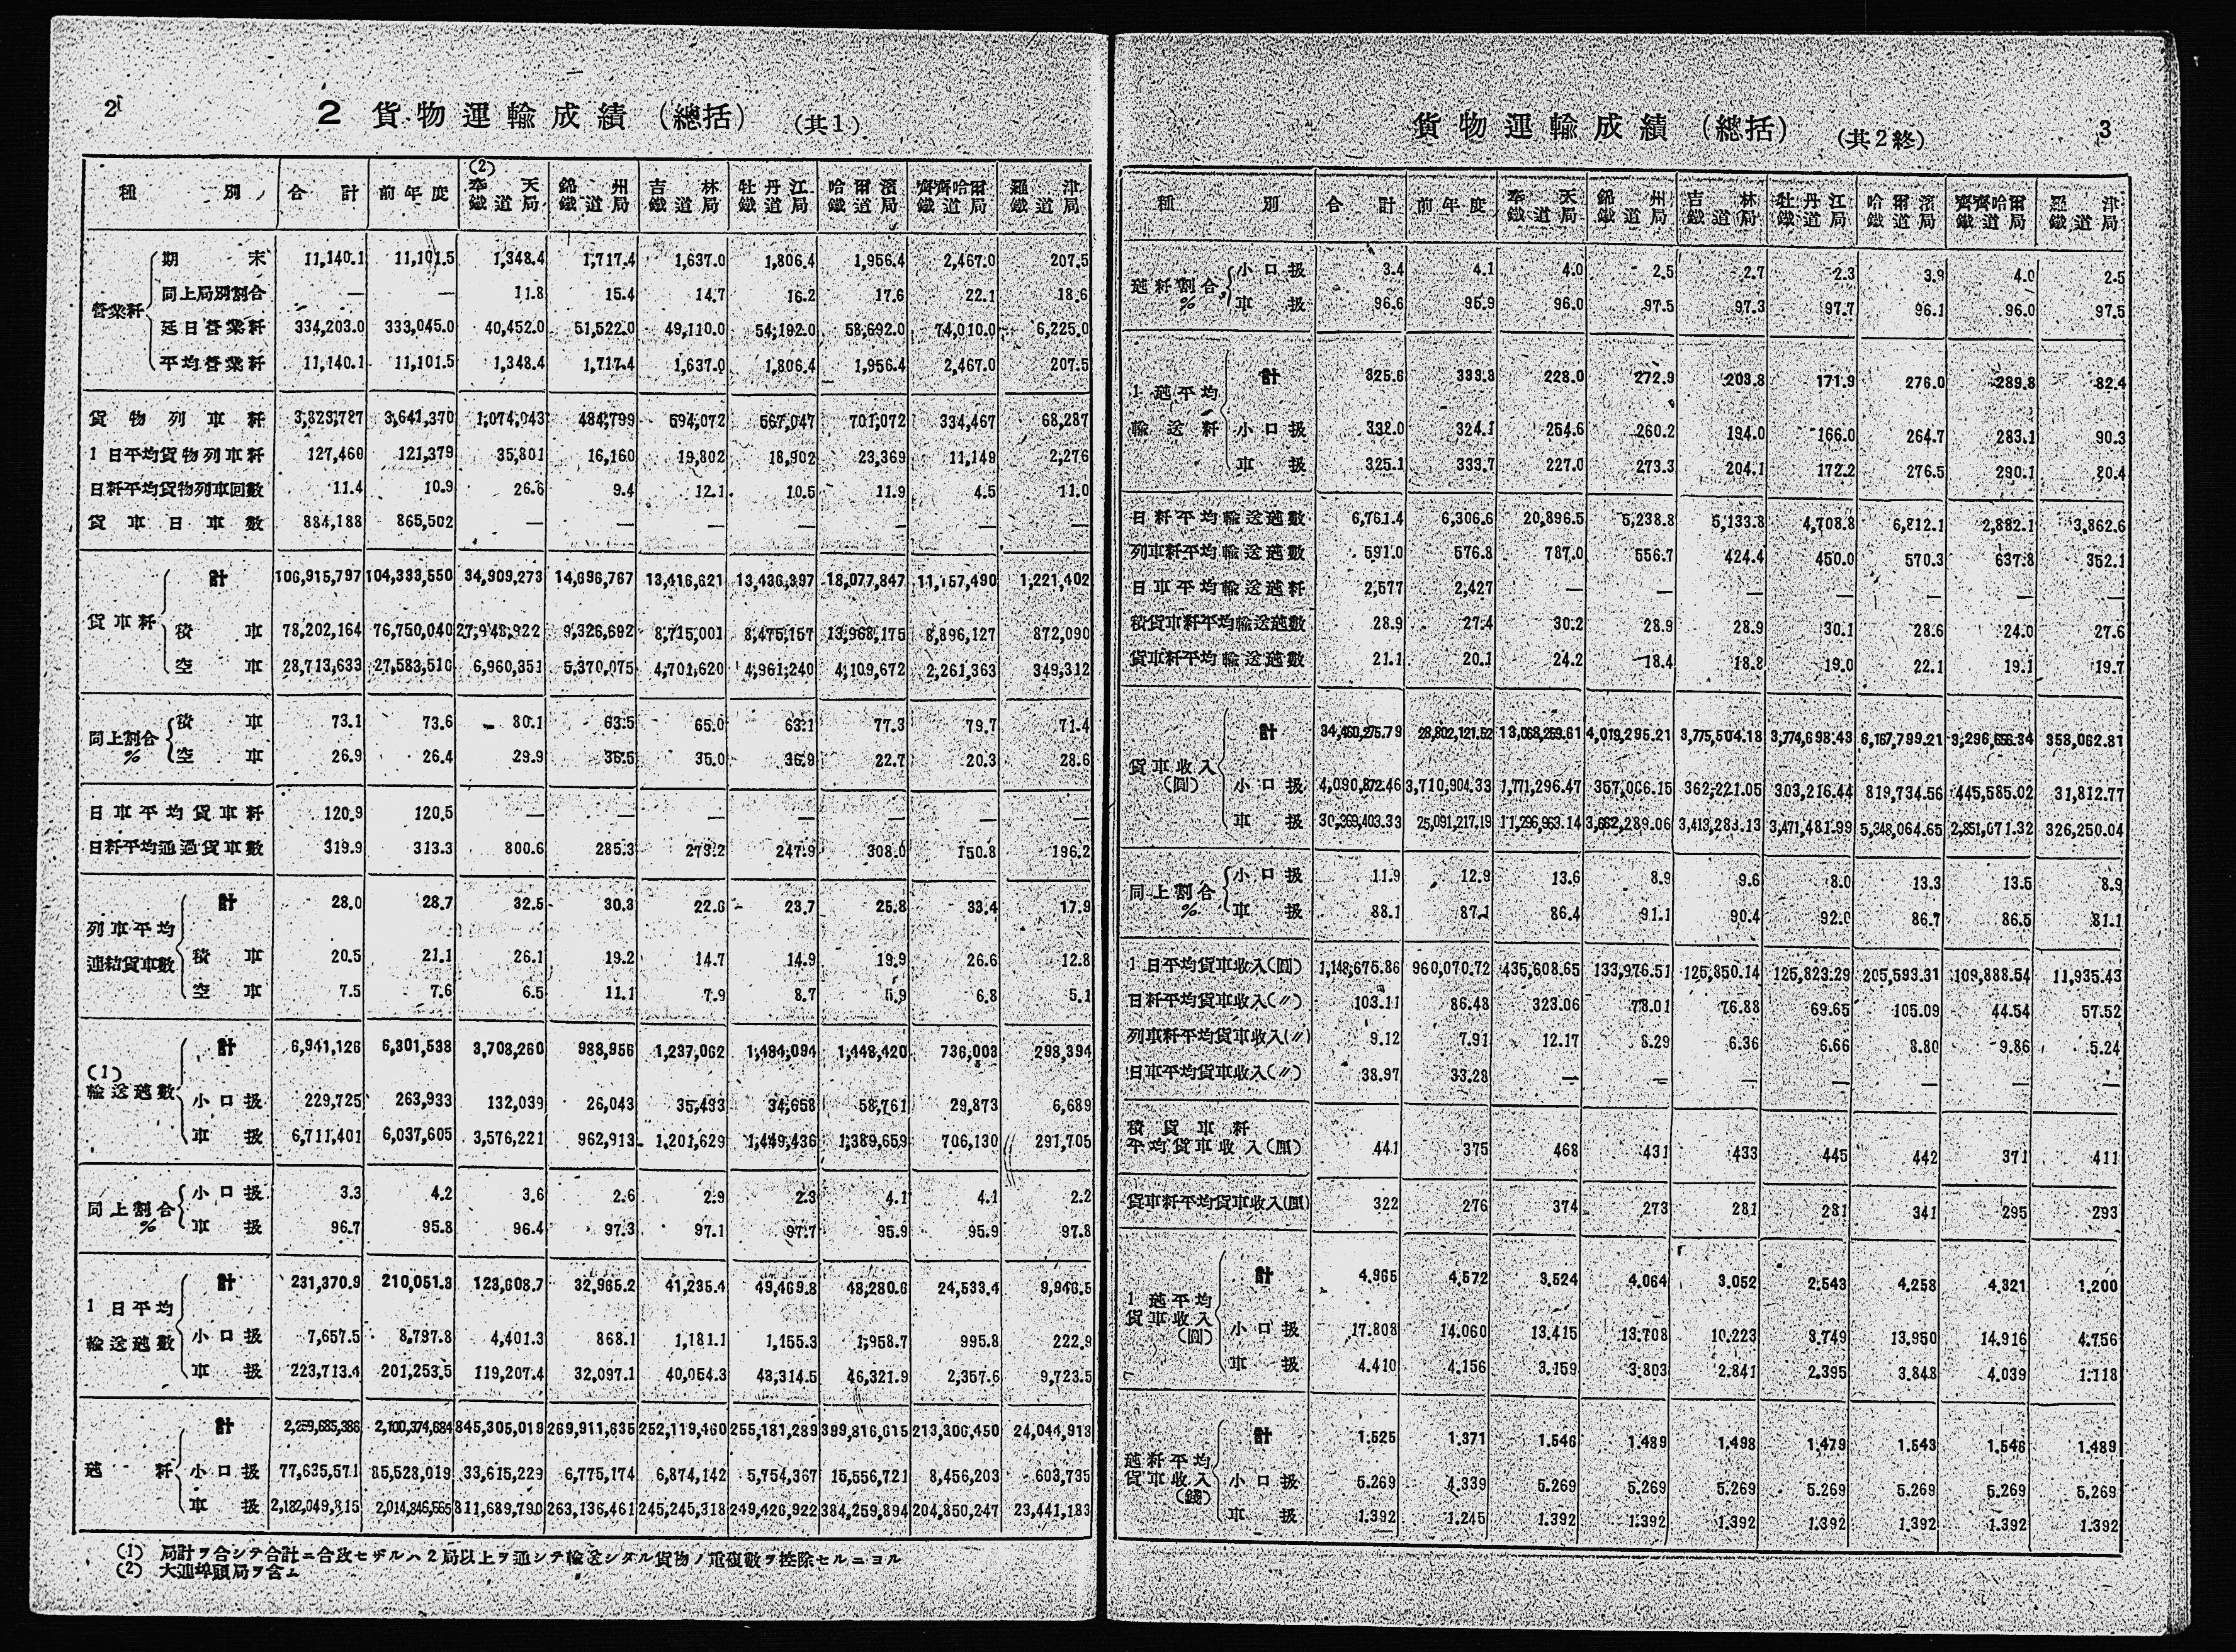 2
2 貨物運輸成績 (總括) (共1)
種別 合計 前年度 (2)奉天鐵道局 錦州鐵道局 吉林鐵道局 牡丹江鐵道局 哈爾濱鐵道局 齊齊哈爾鐵道局 羅津鐵道局
營業粁 期末 11,140.1 11,101.5 1,348.4 1,717.4 1,637.0 1,806.4 1,956.4 2,467.0 207.5
同上局別割合 — — 11.8 15.4 14.7 16.2 17.6 22.1 18.6
延日營業粁 334,203.0 333,045.0 40,452.0 51,522.0 49,110.0 54,192.0 58,692.0 74,010.0 6,225.0
平均營業粁 11,140.1 11,101.5 1,348.4 1,717.4 1,637.0 1,806.4 1,956.4 2,467.0 207.5
貨物列車粁 3,823,787 3,641,370 1,074,043 484,799 594,072 567,047 701,072 334,467 68,287
1日平均貨物列車粁 127,460 121,379 35,801 16,160 19,802 18,902 23,369 11,149 2,276
日粁平均貨物列車回數 11.4 10.9 26.6 9.4 12.1 10.5 11.9 4.5 11.0
貨車日車數 884,188 865,502 — — — — — — —
貨車粁 計 106,915,797 104,333,550 34,909,273 14,696,767 13,416,621 13,436,397 18,077,847 11,157,490 1,221,402
積車 78,202,164 76,750,040 27,948,922 9,326,692 8,715,001 8,475,157 13,968,175 8,896,127 872,090
空車 28,713,633 27,583,510 6,960,351 5,370,075 4,701,620 4,961,240 4,109,672 2,261,363 349,312
同上割合% 積車 73.1 73.6 80.1 63.5 65.0 63.1 77.3 79.7 71.4
空車 26.9 26.4 29.9 36.5 35.0 36.9 22.7 20.3 28.6
日車平均貨車粁 120.9 120.5 — — — — — — —
日粁平均通過貨車數 319.9 313.3 800.6 285.3 273.2 247.9 308.0 150.8 196.2
列車平均連結貨車數 計 28.0 28.7 32.5 30.3 22.6 23.7 25.8 33.4 17.9
積車 20.5 21.1 26.1 19.2 14.7 14.9 19.9 26.6 12.8
空車 7.5 7.6 6.5 11.1 7.9 8.7 5.9 6.8 5.1
(1)輸送瓲數 計 6,941,126 6,301,538 3,708,260 988,956 1,237,062 1,484,094 1,448,420 736,003 298,394
小口扱 229,725 263,933 132,039 26,043 35,433 34,658 58,761 29,873 6,689
車扱 6,711,401 6,037,605 3,576,221 962,913 1,201,629 1,449,436 1,389,659 706,130 291,705
同上割合% 小口扱 3.3 4.2 3.6 2.6 2.9 2.3 4.1 4.1 2.2
車扱 96.7 95.8 96.4 97.3 97.1 97.7 95.9 95.9 97.8
1日平均輸送瓲數 計 231,370.9 210,051.3 123,608.7 32,965.2 41,235.4 49,469.8 48,280.6 24,533.4 9,946.5
小口扱 7,657.5 8,797.8 4,401.3 868.1 1,181.1 1,155.3 1,958.7 995.8 222.9
車扱 223,713.4 201,253.5 119,207.4 32,097.1 40,054.3 48,314.5 46,321.9 2,357.6 9,723.5
瓲粁 計 2,259,685,386 2,100,374,584 845,305,019 269,911,635 252,119,460 255,181,289 399,816,615 213,306,450 24,044,918
小口扱 77,635,571 85,528,019 33,615,229 6,775,174 6,874,142 5,754,367 15,556,721 8,456,203 603,735
車扱 2,182,049,815 2,014,846,565 811,689,790 263,136,461 245,245,318 249,426,922 384,259,894 204,850,247 23,441,183
(1) 局計ヲ合シテ合計ニ合致セザルハ2局以上ヲ通シテ輸送シタル貨物ノ重複數ヲ控除セルニヨル
(2) 大連埠頭局ヲ含ム
貨物運輸成績 (總括) (共2終)
3
種別 合計 前年度 奉天鐵道局 錦州鐵道局 吉林鐵道局 牡丹江鐵道局 哈爾濱鐵道局 齊齊哈爾鐵道局 羅津鐵道局
瓲粁割合% 小口扱 3.4 4.1 4.0 2.5 2.7 2.3 3.9 4.0 2.5
車扱 96.6 95.9 96.0 97.5 97.3 97.7 96.1 96.0 97.5
1瓲平均輸送粁 計 325.6 333.8 228.0 272.9 203.8 171.9 276.0 289.8 82.4
小口扱 332.0 324.1 254.6 260.2 194.0 166.0 264.7 283.1 90.3
車扱 325.1 333.7 227.0 273.3 204.1 172.2 276.5 290.1 80.4
日粁平均輸送瓲數 6,761.4 6,306.6 20,896.5 5,238.8 5,133.8 4,708.8 6,812.1 2,882.1 3,862.6
列車粁平均輸送瓲數 591.0 576.8 787.0 556.7 424.4 450.0 570.3 637.8 352.1
日車平均輸送瓲粁 2,577 2,427 — — — — — — —
積貨車粁平均輸送瓲數 28.9 27.4 30.2 28.9 28.9 30.1 28.6 24.0 27.6
貨車粁平均輸送瓲數 21.1 20.1 24.2 18.4 18.8 19.0 22.1 19.1 19.7
貨車收入(圓) 計 34,460,275.79 28,802,121.52 13,068,259.61 4,019,295.21 3,775,504.18 3,774,698.43 6,167,799.21 3,296,656.34 358,062.81
小口扱 4,090,872.46 3,710,904.33 1,771,296.47 357,006.15 362,221.05 303,216.44 819,734.56 445,585.02 31,812.77
車扱 30,369,403.33 25,091,217.19 11,296,963.14 3,662,289.06 3,413,283.13 3,471,481.99 5,348,064.65 2,851,071.32 326,250.04
同上割合% 小口扱 11.9 12.9 13.6 8.9 9.6 8.0 13.3 13.5 8.9
車扱 88.1 87.1 86.4 91.1 90.4 92.0 86.7 86.5 81.1
1日平均貨車收入(圓) 1,148,675.86 960,070.72 435,608.65 133,976.51 125,850.14 125,823.29 205,593.31 109,888.54 11,935.43
日粁平均貨車收入(〃) 103.11 86.48 323.06 78.01 76.88 69.65 105.09 44.54 57.52
列車粁平均貨車收入(〃) 9.12 7.91 12.17 8.29 6.36 6.66 8.80 9.86 5.24
日車平均貨車收入(〃) 38.97 33.28 — — — — — — —
積貨車粁平均貨車收入(厘) 441 375 468 431 433 445 442 371 411
貨車粁平均貨車收入(厘) 322 276 374 273 281 281 341 295 293
1瓲平均貨車收入(圓) 計 4.965 4.572 3.524 4.064 3.052 2.543 4.258 4.321 1.200
小口扱 17.808 14.060 13.415 13.708 10.223 8.749 13.950 14.916 4.756
車扱 4.410 4.156 3.159 3.803 2.841 2.395 3.848 4.039 1.118
瓲粁平均貨車收入(錢) 計 1.525 1.371 1.546 1.489 1.498 1.479 1.543 1.546 1.489
小口扱 5.269 4.339 5.269 5.269 5.269 5.269 5.269 5.269 5.269
車扱 1.392 1.245 1.392 1.392 1.392 1.392 1.392 1.392 1.392